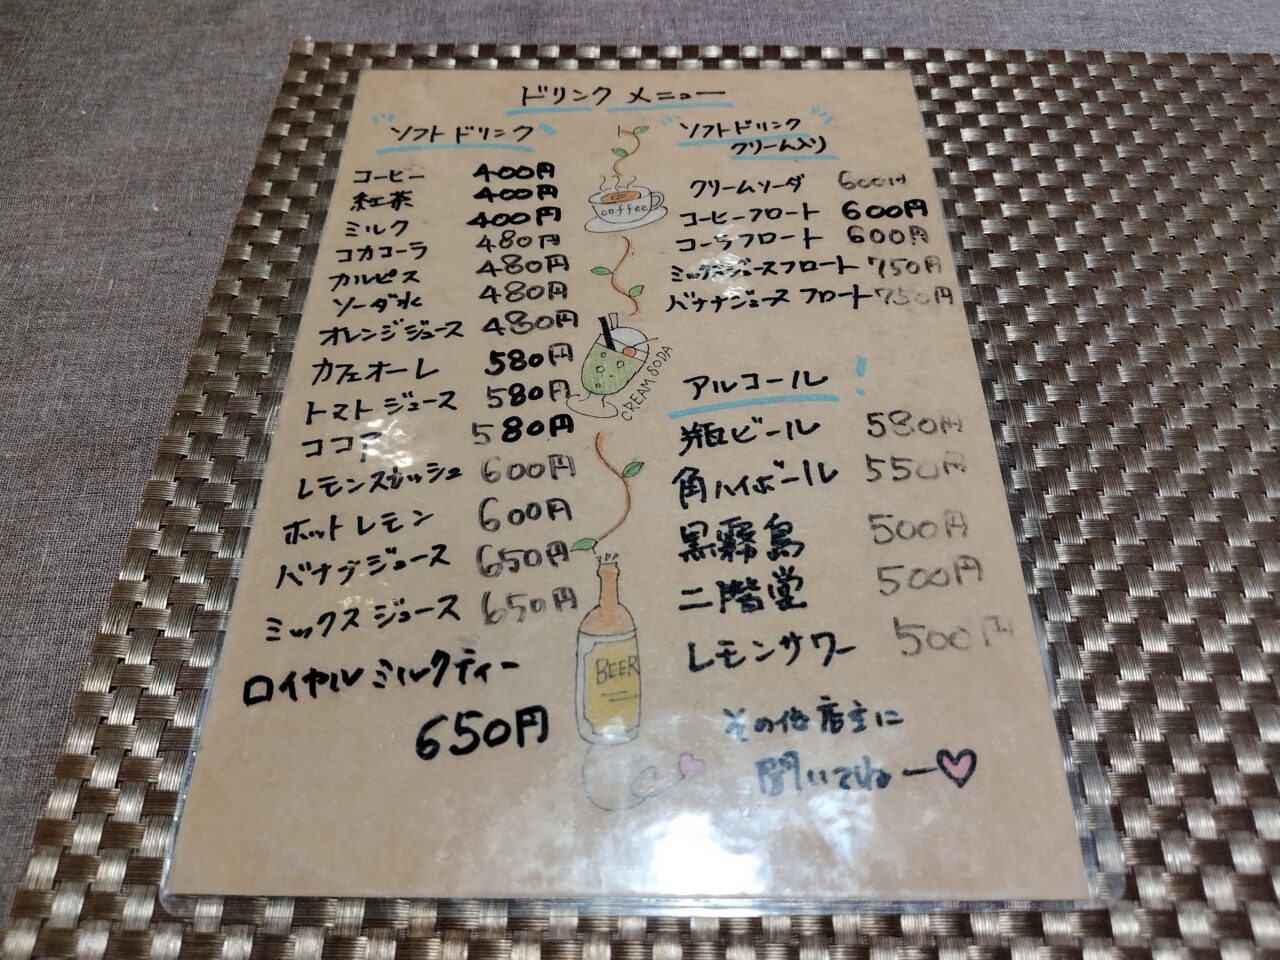 ドリンク メニュー
ソフト ドリンク
コーヒー 400円
紅茶 400円
ミルク 400円
コカコーラ 480円
カルピス 480円
ソーダ水 480円
オレンジジュース 480円
カフェオーレ 580円
トマトジュース 580円
ココア 580円
レモンスカッシュ 600円
ホットレモン 600円
バナナジュース 650円
ミックスジュース 650円
ロイヤルミルクティー
650円
coffee
CREAM SODA
BEER
ソフトドリンク
クリーム入り
クリームソーダ 600円
コーヒーフロート 600円
コーラフロート 600円
ミックスジュースフロート 750円
バナナジュース フロート 750円
アルコール!
瓶ビール 580円
角ハイボール 550円
黒霧島 500円
二階堂 500円
レモンサワー 500円
その他店主に
聞いてねー♡